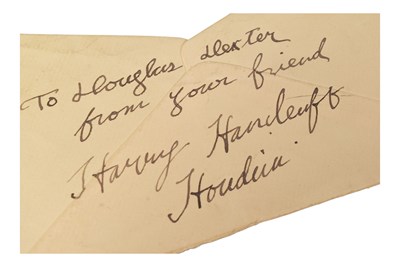 To Douglas Dexter
from your friend
Harry Handcuff
Houdini.